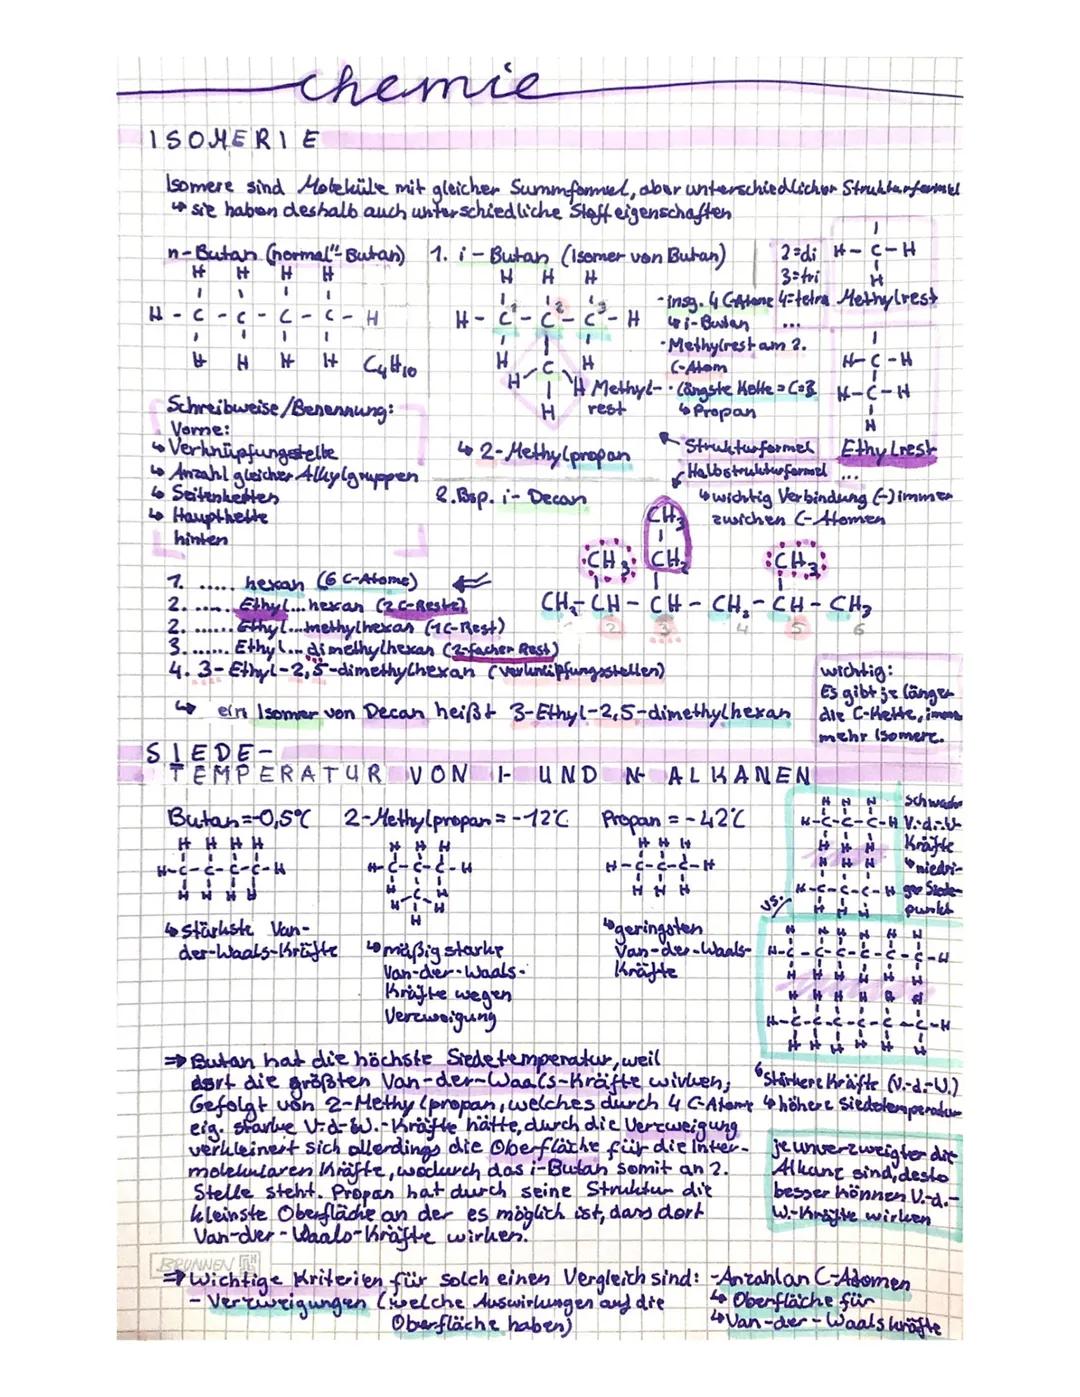 chemie
ISOMERIE
Isomere sind Moleküle mit gleicher Summformel, aber unterschiedlicher Strukturformel
↳ sie haben deshalb auch unterschiedliche Stoffeigenschaften
n-Butan (normal"-Butan)
H H H H
H - C - C - C - C - H
H H H H
C₄H₁₀
1. i-Butan (Isomer von Butan)
H H H
H - C¹ - C² - C³ - H
H C H
H H
H
Methyl-
rest
↳ 2-Methylpropan
-insg. 4 C-Atome
↳ i-Butan
-Methylrest am 2.
C-Atom
-längste Kette = C=3
↳ Propan
2=di
3=tri
4=tetra
...
H - C - H
H
Methylrest
H - C - H
H - C - H
H
Ethylrest
...
Schreibweise/Benennung:
Vorne:
↳ Verknüpfungsstelle
↳ Anzahl gleicher Alkylgruppen
↳ Seitenketten
↳ Hauptkette
hinten
Strukturformel
Halbstrukturformel
↳ wichtig Verbindung (-) immer
zwichen C-Atomen
2. Bsp. i-Decan
CH₃
CH₃ CH₂ CH₃
CH₃ - CH - CH - CH₂ - CH - CH₃
1 2 3 4 5 6
1. ..... hexan (6 C-Atome)
2. ..... Ethyl...hexan (2 C-Reste)
2. ...... Ethyl...methylhexan (1C-Rest)
3. ...... Ethyl...dimethylhexan (2-facher Rest)
4. 3-Ethyl-2,5-dimethylhexan (verknüpfungsstellen)
↳ ein Isomer von Decan heißt 3-Ethyl-2,5-dimethylhexan
wichtig:
Es gibt je länger
die C-Kette, immer
mehr Isomere.
SIEDE-
TEMPERATUR VON I- UND N- ALKANEN
Butan = -0,5°C
H H H H
H-C-C-C-C-H
H H H H
↳ stärkste Van-
der-Waals-Kräfte
2-Methylpropan = -12°C
H H H
H-C-C-C-H
H C H
H H
H
↳ mäßig starke
Van-der-Waals-
Kräfte wegen
Verzweigung
Propan = -42°C
H H H
H-C-C-C-H
H H H
↳ geringsten
Van-der-Waals-
Kräfte
H H H
H-C-C-C-H
H H H
H H H
H-C-C-C-H
H H H
schwache
V.-d.-W-
Kräfte
↳ niedri-
ger Siede-
punkt
vs.
H H H H H H
H-C-C-C-C-C-C-H
H H H H H H
H H H H H H
H-C-C-C-C-C-C-H
H H H H H H
↳ Stärkere Kräfte (V.-d.-W.)
↳ höhere Siedetemperatur
⇒ Butan hat die höchste Siedetemperatur, weil
dort die größten Van-der-Waals-Kräfte wirken;
Gefolgt von 2-Methylpropan, welches durch 4 C-Atome
eig. starke V-d-W.-Kräfte hätte, durch die Verzweigung
verkleinert sich allerdings die Oberfläche für die Inter-
molekularen Kräfte, wodurch das i-Butan somit an 2.
Stelle steht. Propan hat durch seine Struktur die
kleinste Oberfläche an der es möglich ist, dass dort
Van-der-Waals-Kräfte wirken.
je unverzweigter die
Alkane sind, desto
besser können V.-d.-
W.-Kräfte wirken
BRUNNEN
⇒ Wichtige Kriterien für solch einen Vergleich sind: -Anzahl an C-Atomen
↳ Oberfläche für
↳ Van-der-Waalskräfte
- Verzweigungen (welche Auswirkungen auf die
Oberfläche haben)